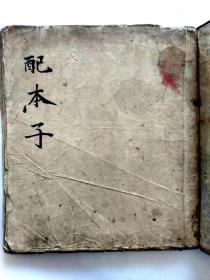 配本子